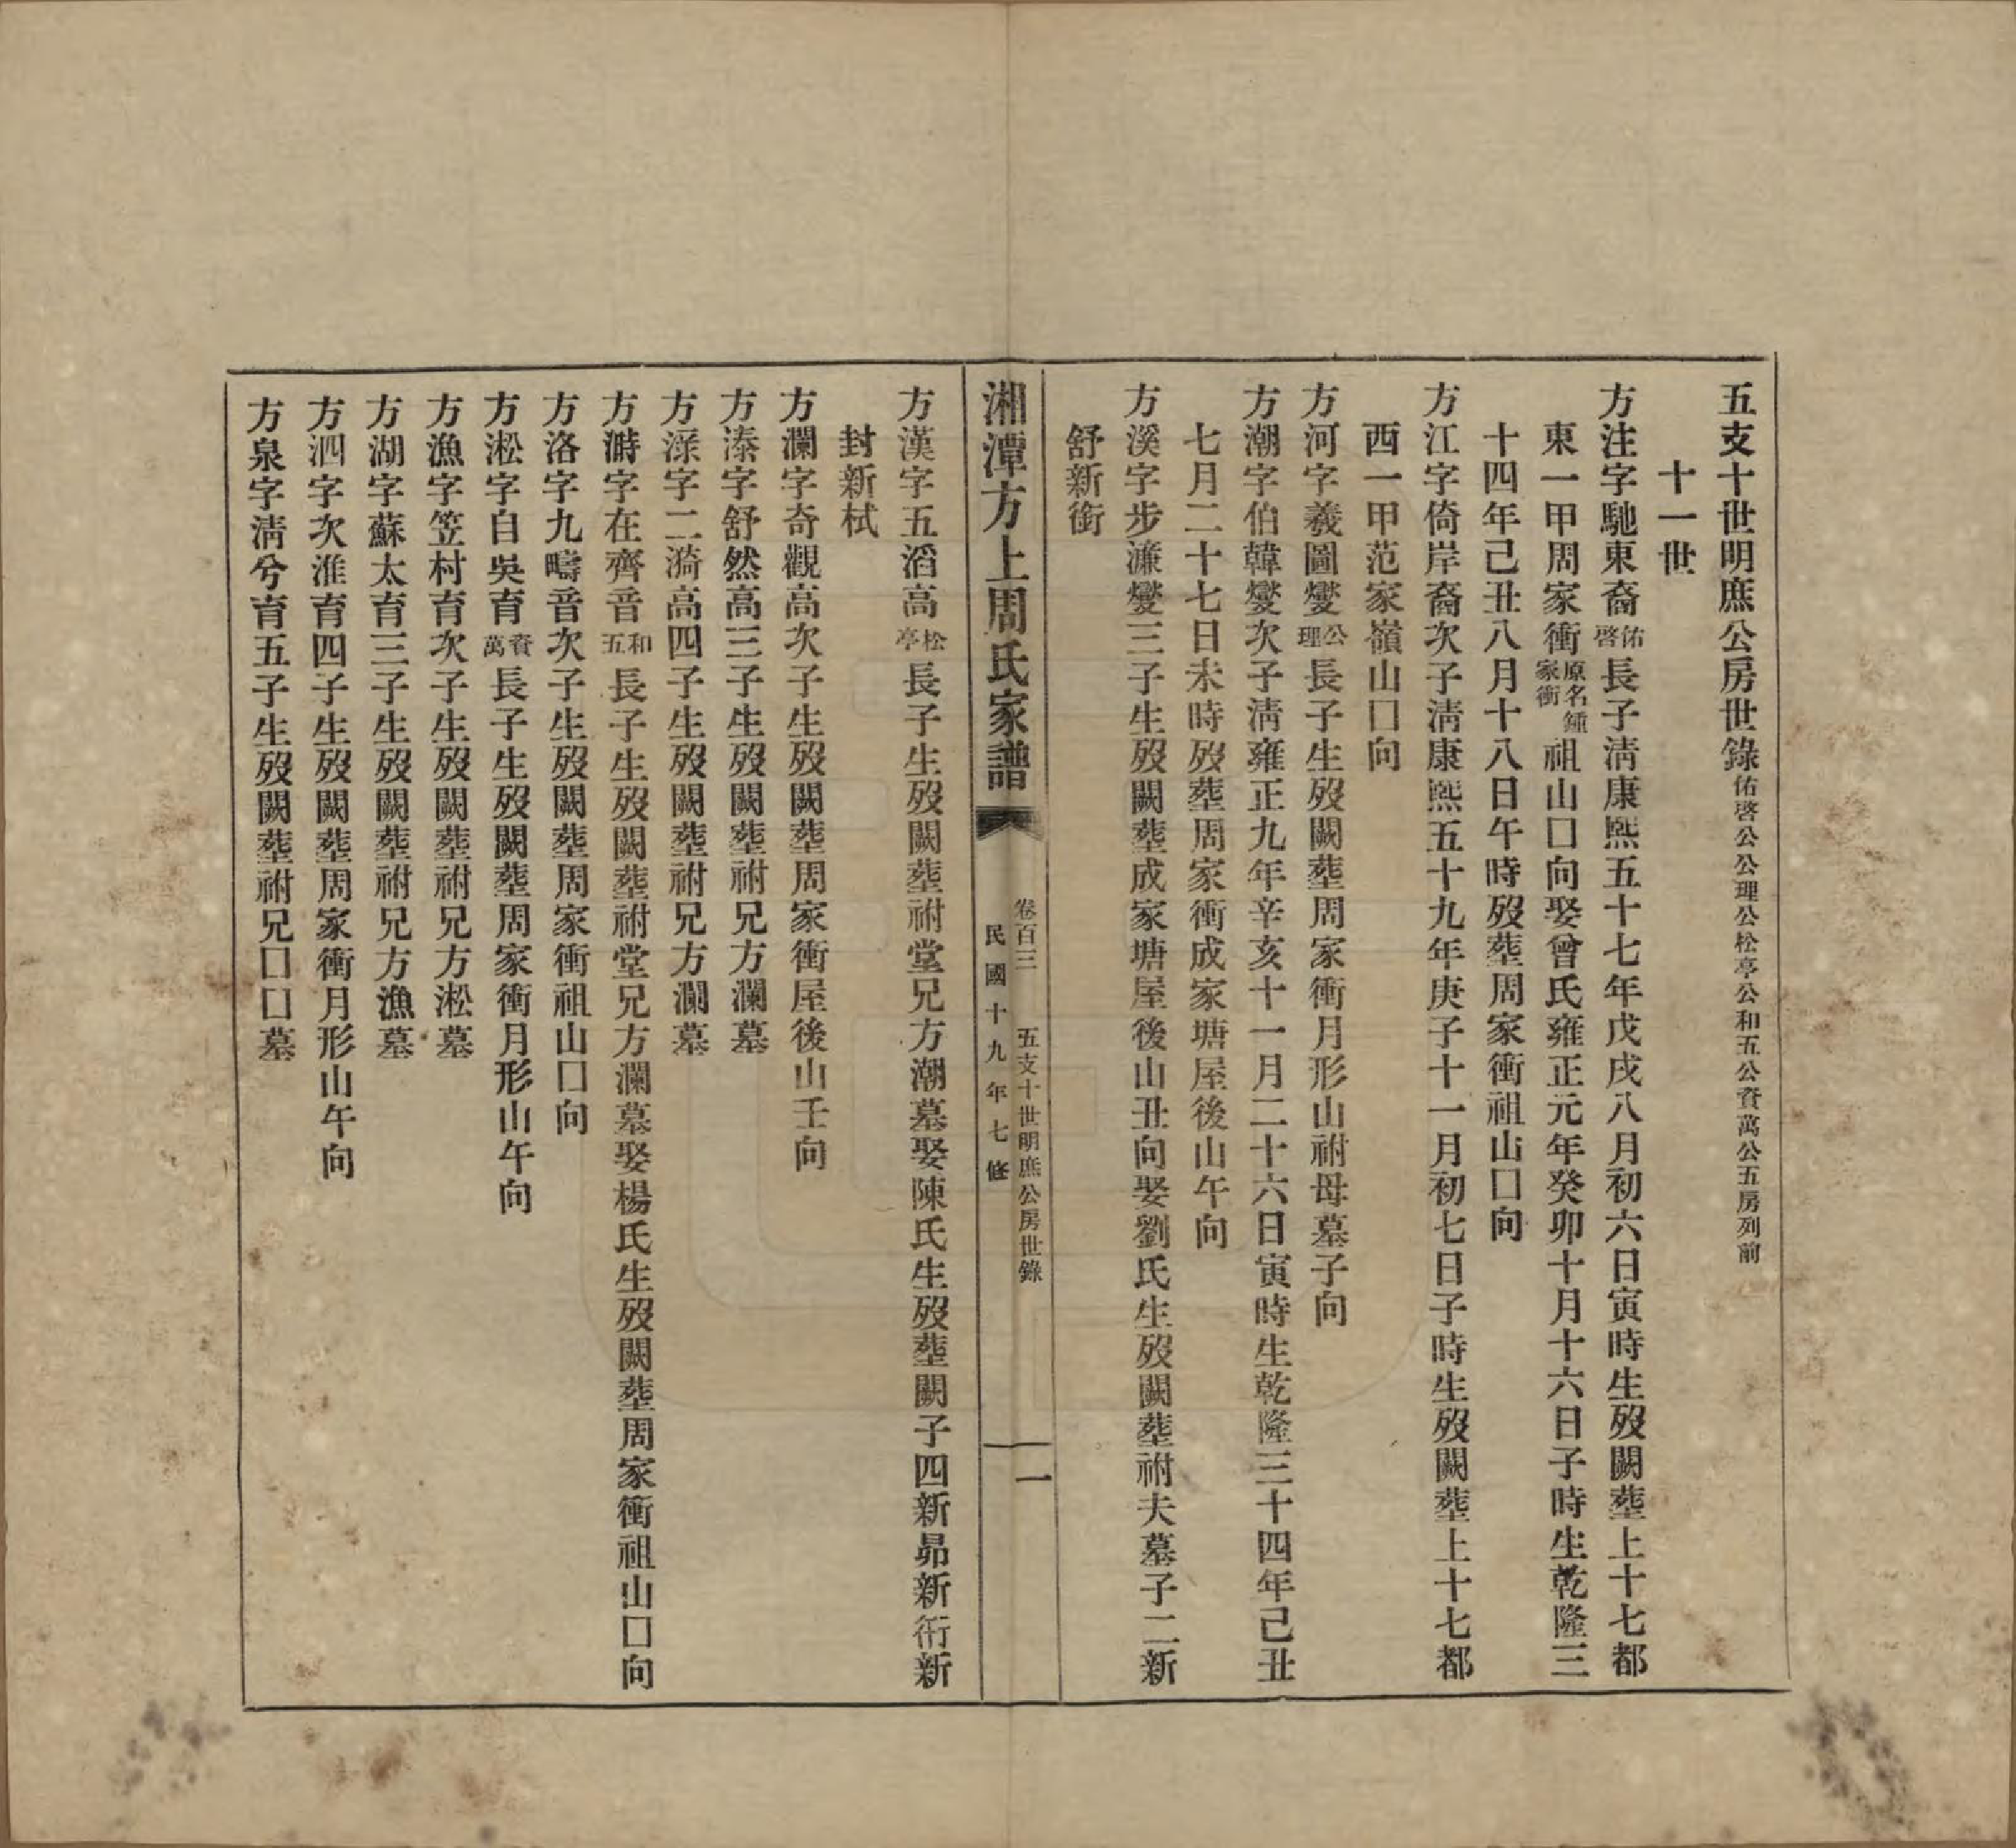 五支十世明庶公房世錄佑啓公公理公松亭公和五公資萬公五房列前
十一世
方注字馳東裔佑啓長子淸康熙五十七年戊戌八月初六日寅時生歿闕葬上十七都
東一甲周家衝原名鍾家衝祖山囗向娶曾氏雍正元年癸卯十月十六日子時生乾隆三
十四年己丑八月十八日午時歿葬周家衝祖山囗向
方江字倚岸裔次子淸康熙五十九年庚子十一月初七日子時生歿闕葬上十七都
西一甲范家嶺山囗向
方河字羲圖燮公理長子生歿闕葬周家衝月形山祔母墓子向
方潮字伯韓燮次子淸雍正九年辛亥十一月二十六日寅時生乾隆三十四年己丑
七月二十七日未時歿葬周家衝成家塘屋後山午向
方溪字步濂燮三子生歿闕葬成家塘屋後山丑向娶劉氏生歿闕葬祔夫墓子二新
舒新銜
湘潭方上周氏家譜
卷百三 五支十世明庶公房世錄 一
民國十九年七修
方漢字五滔高松亭長子生歿闕葬祔堂兄方潮墓娶陳氏生歿葬闕子四新昴新衎新
封新栻
方瀾字奇觀高次子生歿闕葬周家衝屋後山壬向
方溱字舒然高三子生歿闕葬祔兄方瀾墓
方淥字二漪高四子生歿闕葬祔兄方瀾墓
方溡字在齊音和五長子生歿闕葬祔堂兄方瀾墓娶楊氏生歿闕葬周家衝祖山囗向
方洛字九疇音次子生歿闕葬周家衝祖山囗向
方淞字自吳育資萬長子生歿闕葬周家衝月形山午向
方漁字笠村育次子生歿闕葬祔兄方淞墓
方湖字蘇太育三子生歿闕葬祔兄方漁墓
方泗字次淮育四子生歿闕葬周家衝月形山午向
方泉字淸兮育五子生歿闕葬祔兄囗囗墓